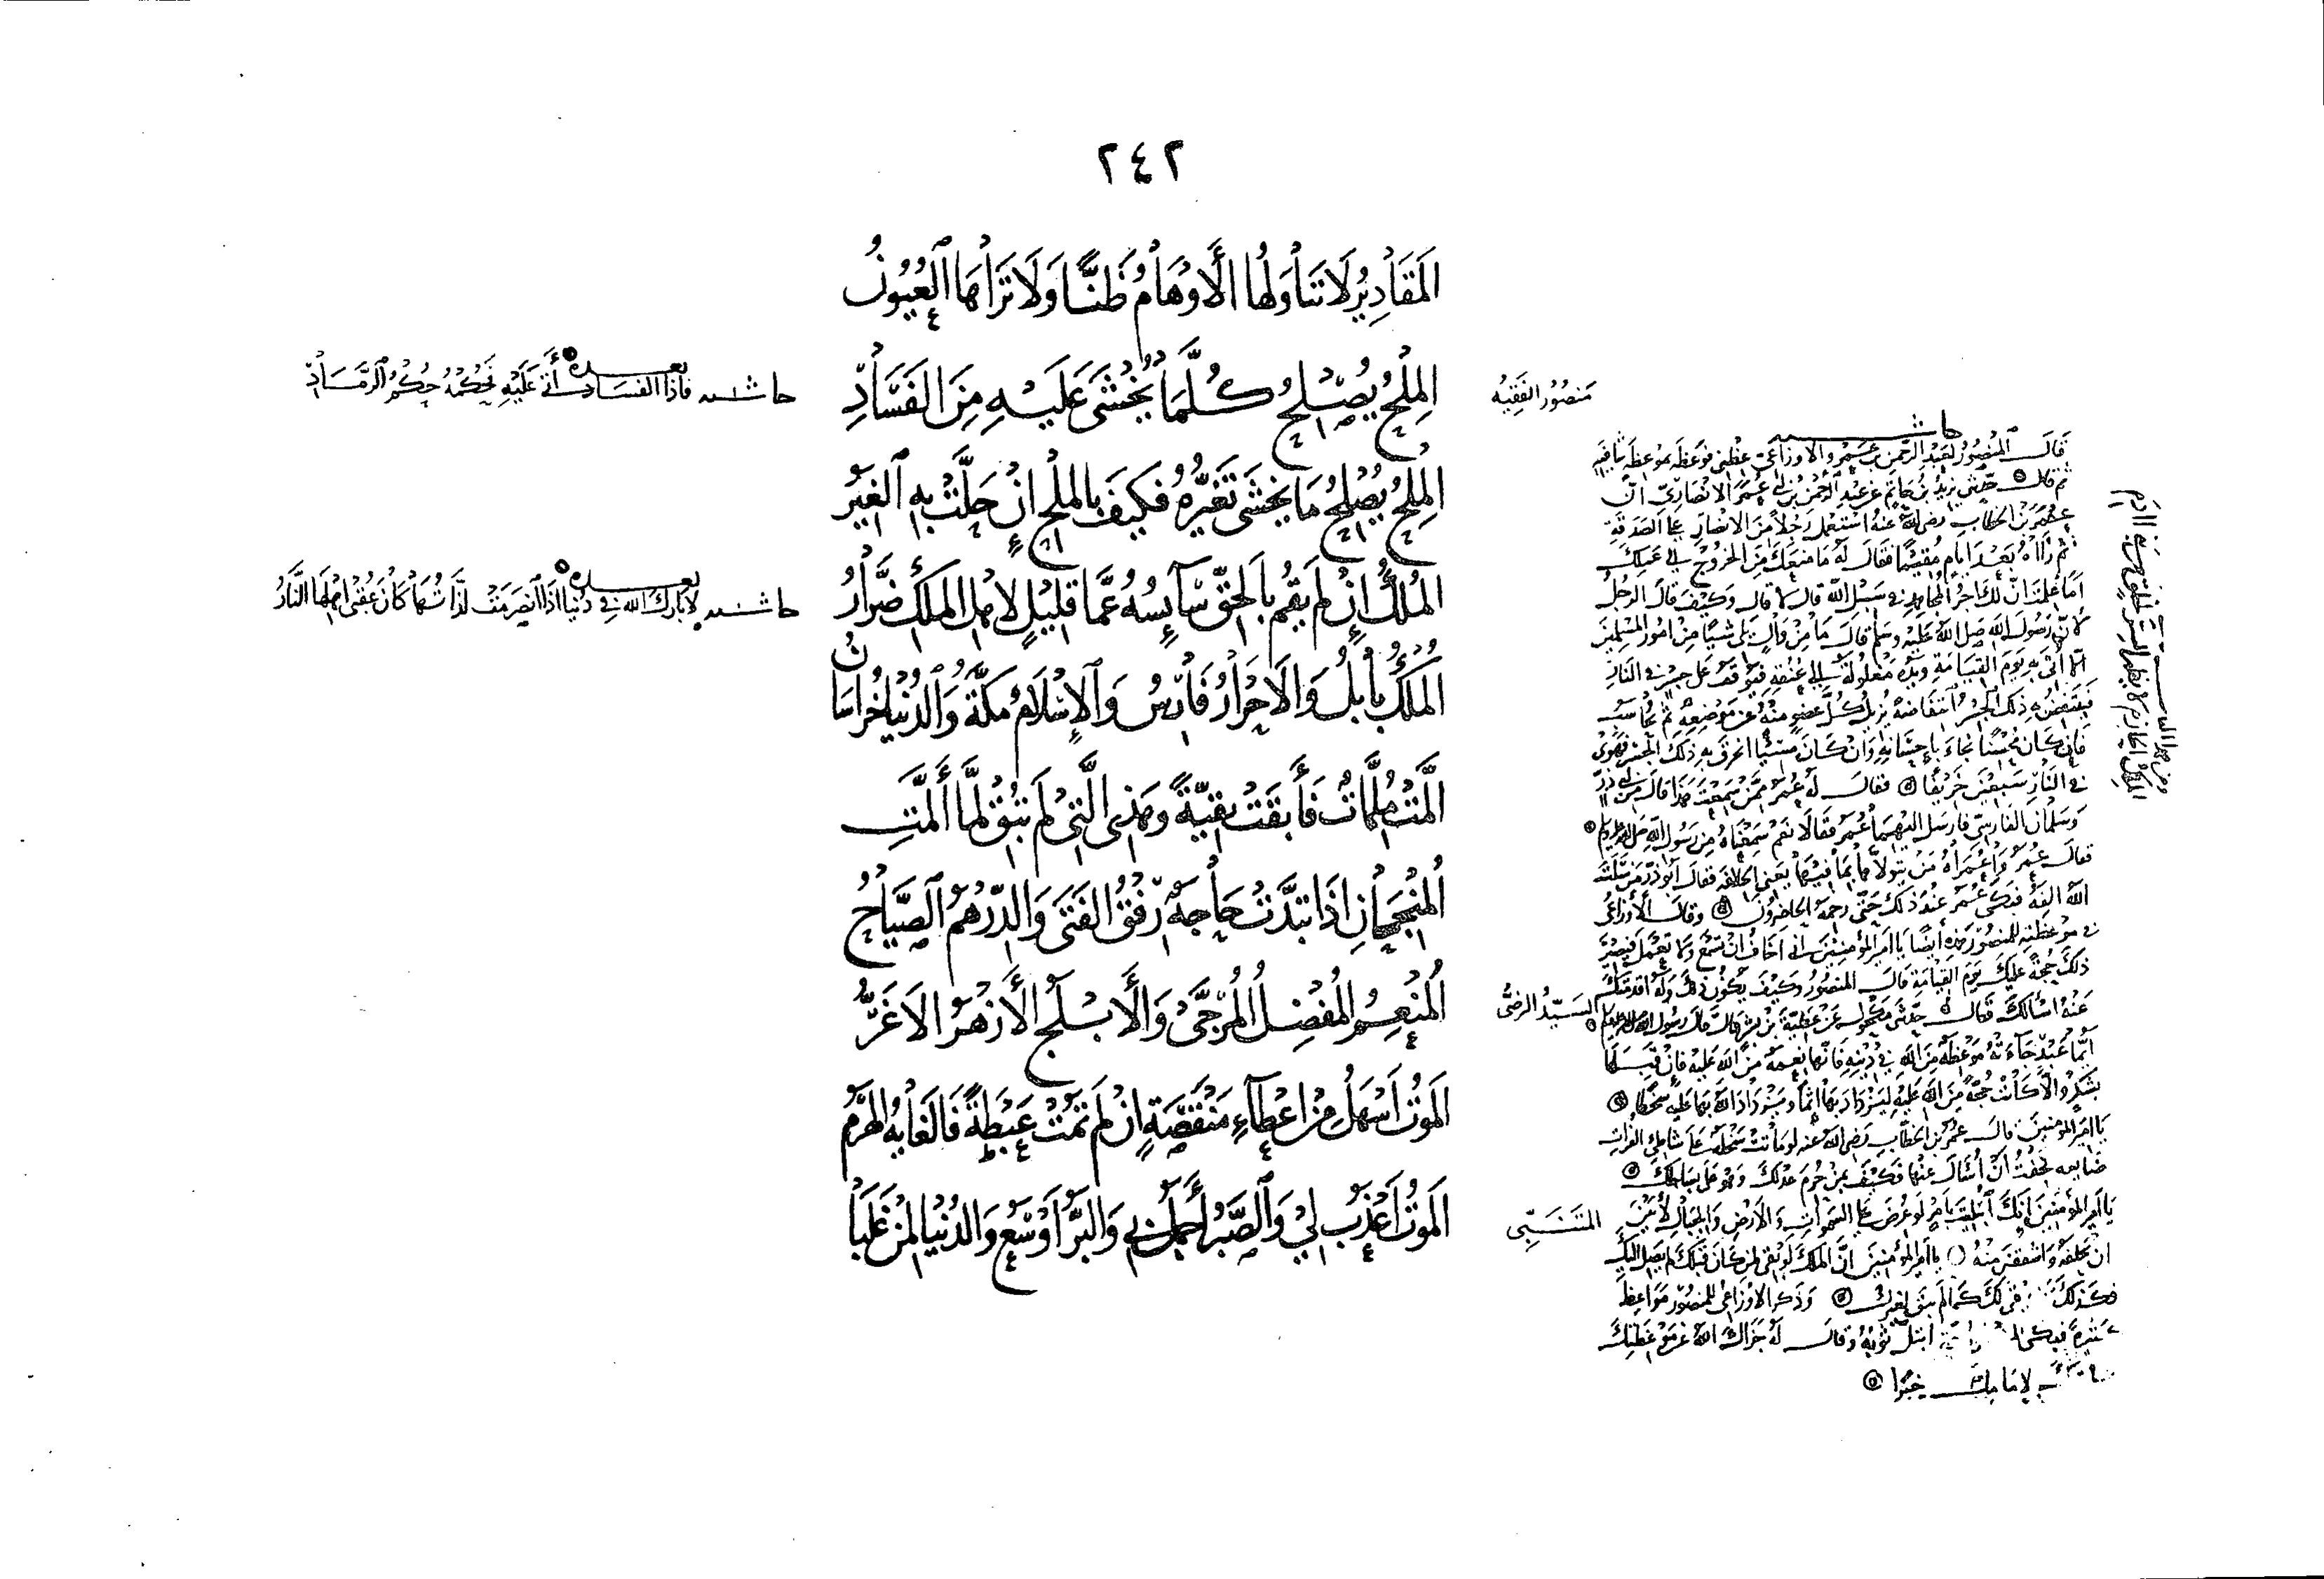 ٢٤٢
المَقَادِيرُ لَا تَنَاوَلُهَا الأَوْهَامُ ظَنًّا وَلَا تَرَاهَا العُيُونُ
منصُورُ الفَقِيهُ
المِلْحُ يُصْلِحُ كُلَّمَا يُخْشَى عَلَيْهِ مِنَ الفَسَادِ
حاشية بعده
فَاذَا الفسَادُ أَتَى عَلَيْهِ فَحُكْمُهُ حُكْمُ الرَّمَادِ
المِلحُ يُصْلِحُ مَا يُخشَى تَغَيُّرُهُ فكَيفَ بالملحِ إنْ حَلَّتْ بِهِ الغِيَرُ
المُلكُ إنْ لَم يَقُم بِالحَقِّ سَايِسُهُ عَمَّا قَلِيلٍ لأهلِ المُلكِ ضَرَّارُ
حاشية بعده
لا بَارَكَ اللَّه في دُنيَا إذَا انصَرَمَت لذَّاتُهَا كَانَ عُقْبَى أهلِهَا النَّارُ
المُلكُ بَابِلُ وَالأَحْرَارُ فَارِسُ وَالإسْلَامُ مَكَّةُ وَالدُّنيَا خُرَاسَانُ
أَلَّمَتْ مُلِمَّاتٌ فَأَبقَتْ بَقِيَّةً وهَذِى الَّتِى لَم تُبْقِ لمَّا أَلَمَّتِ
المُنْجِحَانِ اذَا تبدَّتْ حَاجَةٌ رِفقُ الفَتَى وَالدِّرْهَمُ الصَّيَّاحُ
السَيّدُ الرضىُّ
المُنعِمُ المُفْضِلُ المُرَجَّىْ وَالأَبْلَجُ الأَزْهَرُ الأَغَرُّ
المَوتُ أسْهَلُ مِنْ اعْطَاءِ مَنْقَصَةٍ إنْ لَم تَمُتْ عَبْطَةً فَالغَايَةُ الهَرَمُ
المتَنَبِّى
المَوتُ أعْذَرُ لي وَالصَّبْرُ أجمَلُ بي وَالبَرُّ أوْسَعُ وَالدُنيَا لمَنْ غَلَبَا
حاشية
قالَ المَنصُورُ لعَبدِ الرَّحمنِ بنِ عَمْرٍو الأوزاعىّ عظْنى فوَعظَهُ بموعظَه شافيه
ثم قال حدّثنى يزيدُ بنُ جابر عَن عَبْدِ الرَّحمنِ بن أبي عَمْرَة الأنصَارِيّ أنّ
عُمَرَ بنَ الخطّاب رضى اللَّه عنهُ استَعْمَلَ رَجُلاً مِنَ الأنصَارِ عَلَى الصَّدَقَةِ
ثم رآهُ بَعْدَ أيامٍ مُقِيمًا فقَالَ لَهُ مَا مَنعَكَ مِنَ الخروجِ إلى عَمَلِكَ
أمَا عَلِمْتَ أنَّ لَكَ أجرَ المجاهِدِ في سَبيل اللَّه قال لا قال وكَيْفَ قالَ الرجُلُ
لأنّ رَسُولَ اللَّه صَلى اللَّهُ عَليْهِ وسلم قَالَ مَا مِنْ وَالٍ يَلى شيئًا مِنْ أمُورِ المسْلِمينَ
إلَّا أُتىَ بِهِ يَومَ القيَامَةِ ويَدُهُ مَغلُولَةٌ إلى عُنقهِ فيُوقفُ عَلى جسْرٍ في النَّار
فيَنتَفِضُ بِهِ ذلِكَ الجِسْرُ انتفَاضةً يزيلُ كُلَّ عُضوٍ مِنْهُ عَن مَوْضِعِهِ ثم يُحَاسَبُ
فَإن كَانَ مُحْسِنًا نجَا بإحْسَانِهِ وَإنْ كَانَ مُسِيئًا انخرَقَ بِهِ ذلِكَ الجسْرُ فهَوَى
في النَّارِ سَبعِينَ خَرِيفًا فقالَ لَهُ عُمَرُ ممَّنْ سَمِعْتَ هَذَا قَالَ مِن أبي ذَرّ
وَسَلمان الفَارسىِّ فَأرسَلَ إليهمَا عُمَرُ فقالَا نَعَم سَمِعْنَاهُ مِن رَسُولِ اللَّه صلى اللَّه عليه وسلم
فقالَ عُمَرُ وَاعُمَرَاهُ مَنْ يَتَولاهَا بمَا فيهَا يَعنى الخلافَة فقَالَ أبُو ذَرّ مَنْ سَلَتَ
اللَّهُ أنفَهُ فبَكَى عُمَرُ عنْدَ ذلكَ حَتَّى رحمَهُ الحاضرُونَ وقَالَ الأوزَاعىُّ
في موْعظَتِهِ للمنصُور هَذِهِ أيضًا يا أمير المؤمِنِينَ إنى أخَافُ أنْ تَسْمَعَ ولا تعْمَل فيَصيرَ
ذَلكَ حجَّةً عَليْكَ يَومَ القيَامَةِ قَالَ المنصُورُ وكَيْفَ يَكُونُ ذلكَ
عَنْهُ أسْألكَ فقالَ حدّثنى مَكحُول عَنْ عَطيّةَ بنِ بشرٍ قالَ قالَ رسُولُ اللَّه صلى اللَّه عليه وسلم
أيُّمَا عَبْدٍ جَاءَتْهُ مَوْعظَةٌ مِنَ اللَّه في دِينِهِ فَإنَّهَا نِعْمَةٌ مِنَ اللَّه عَليهِ فإنْ قَبِلَهَا
بشُكرٍ وإلّا كَانَتْ حُجَّةً مِنَ اللَّه عَليْهِ ليَزدَادَ بهَا إثمًا ويَزدَادَ اللَّهُ بهَا عَليه سَخطًا
يَا أمير المؤمنينَ قالَ عُمَرُ بنُ الخطّابِ رَضى اللَّه عَنه لو مَاتَتْ سَخْلَةٌ عَلَى شَاطِئِ الفُراتِ
ضايعه لخفْتُ أنْ أُسْألَ عَنهَا فكَيْفَ بمَنْ حُرِمَ عَدْلَكَ وَهوَ عَلى بسَاطِكَ
يَا أميرَ المؤمنينَ إنَّكَ ابْتُلِيتَ بأمْرٍ لَو عُرضَ عَلى السَّمَواتِ وَالأرْضِ وَالجبَالِ لأبَيْنَ
أن يَحملنَهُ وَأشْفَقْنَ مِنْهُ يا أميرَ المؤمنينَ إنَّ المُلكَ لَو بَقىَ لمَنْ كَانَ قبلَكَ لم يَصِل إليكَ
فكَذلكَ لكَ كَمَا لَم يَبقَ لغَيرِكَ وَذكَرَ الأوزَاعىُّ للمنصُور مَوَاعِظَ
كَثيرةً فبَكى ابتلّ ثوبُهُ وَقالَ لَهُ جَزَاكَ اللَّهُ عَن مَوْعظَتِكَ
لإمَامِكَ خَيْرًا